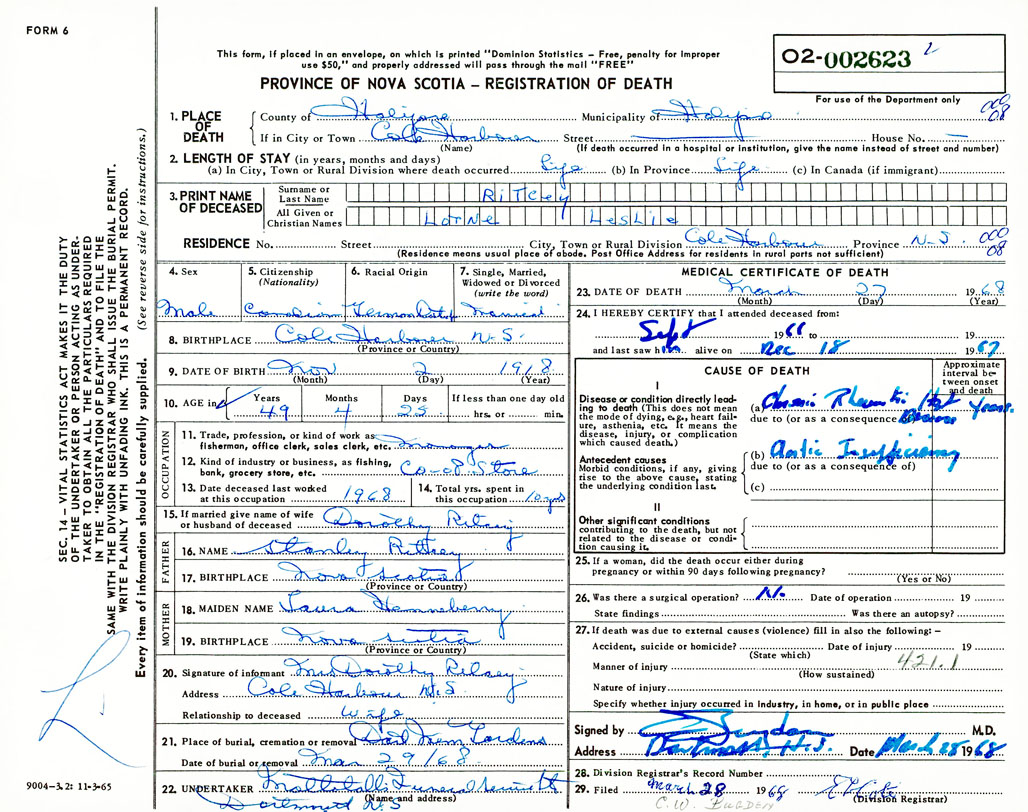 FORM 6
This form, if placed in an envelope, on which is printed "Dominion Statistics – Free, penalty for improper
use $50," and properly addressed will pass through the mail "FREE"
PROVINCE OF NOVA SCOTIA – REGISTRATION OF DEATH
02-002623
For use of the Department only
1. PLACE OF DEATH
County of Halifax Municipality of Halifax
If in City or Town Cole Harbour Street House No.
(Name) (If death occurred in a hospital or institution, give the name instead of street and number)
2. LENGTH OF STAY (in years, months and days)
(a) In City, Town or Rural Division where death occurred Life (b) In Province Life (c) In Canada (if immigrant)
3. PRINT NAME OF DECEASED
Surname or Last Name RITCEY
All Given or Christian Names LORNE LESLIE
RESIDENCE No. Street City, Town or Rural Division Cole Harbour Province N.S.
(Residence means usual place of abode. Post Office Address for residents in rural parts not sufficient)
000
08
000
08
4. Sex
Male
5. Citizenship (Nationality)
Canadian
6. Racial Origin
7. Single, Married, Widowed or Divorced (write the word)
Married
8. BIRTHPLACE Cole Harbour N.S.
(Province or Country)
9. DATE OF BIRTH Nov 2 1918
(Month) (Day) (Year)
10. AGE in
Years Months Days If less than one day old
49 4 25 hrs. or min.
OCCUPATION
11. Trade, profession, or kind of work as fisherman, office clerk, sales clerk, etc. Manager
12. Kind of industry or business, as fishing, bank, grocery store, etc. Co-op Store
13. Date deceased last worked at this occupation 1968
14. Total yrs. spent in this occupation 10 yrs
15. If married give name of wife or husband of deceased Dorothy Ritcey
FATHER
16. NAME Stanley Ritcey
17. BIRTHPLACE Nova Scotia
(Province or Country)
MOTHER
18. MAIDEN NAME Laura Henneberry
19. BIRTHPLACE Nova Scotia
(Province or Country)
20. Signature of informant Mrs Dorothy Ritcey
Address Cole Harbour N.S.
Relationship to deceased Wife
21. Place of burial, cremation or removal Dart Mem Gardens
Date of burial or removal Mar 29/68
22. UNDERTAKER Mattatalls Funeral Service
Dartmouth N.S
(Name and address)
MEDICAL CERTIFICATE OF DEATH
23. DATE OF DEATH March 27 1968
(Month) (Day) (Year)
24. I HEREBY CERTIFY that I attended deceased from:
Sept 1966 to 19
and last saw him alive on Dec 18 1967
CAUSE OF DEATH
Approximate interval between onset and death
I
Disease or condition directly leading to death (This does not mean the mode of dying, e.g., heart failure, asthenia, etc. It means the disease, injury, or complication which caused death.)
(a) Chronic Rheumatic Heart Disease Years.
due to (or as a consequence of)
Antecedent causes
Morbid conditions, if any, giving rise to the above cause, stating the underlying condition last.
(b) Aortic Insufficiency
due to (or as a consequence of)
(c)
II
Other significant conditions contributing to the death, but not related to the disease or condition causing it.
25. If a woman, did the death occur either during pregnancy or within 90 days following pregnancy?
(Yes or No)
26. Was there a surgical operation? No Date of operation 19
State findings Was there an autopsy?
27. If death was due to external causes (violence) fill in also the following: –
Accident, suicide or homicide? Date of injury 19
(State which)
421.1
Manner of injury
(How sustained)
Nature of injury
Specify whether injury occurred in industry, in home, or in public place
Signed by M.D.
Address Dartmouth, N.S. Date March 28 1968
28. Division Registrar's Record Number
29. Filed March 28 1968
(Division Registrar)
C.W. BUGDEN
SEC. 14 – VITAL STATISTICS ACT MAKES IT THE DUTY
OF THE UNDERTAKER OR PERSON ACTING AS UNDERTAKER
TO OBTAIN ALL THE PARTICULARS REQUIRED
IN THE "REGISTRATION OF DEATH" AND TO FILE THE
SAME WITH THE DIVISION REGISTRAR WHO SHALL ISSUE THE BURIAL PERMIT.
WRITE PLAINLY WITH UNFADING INK. THIS IS A PERMANENT RECORD.
Every item of information should be carefully supplied. (See reverse side for instructions.)
9004-3.2: 11-3-65